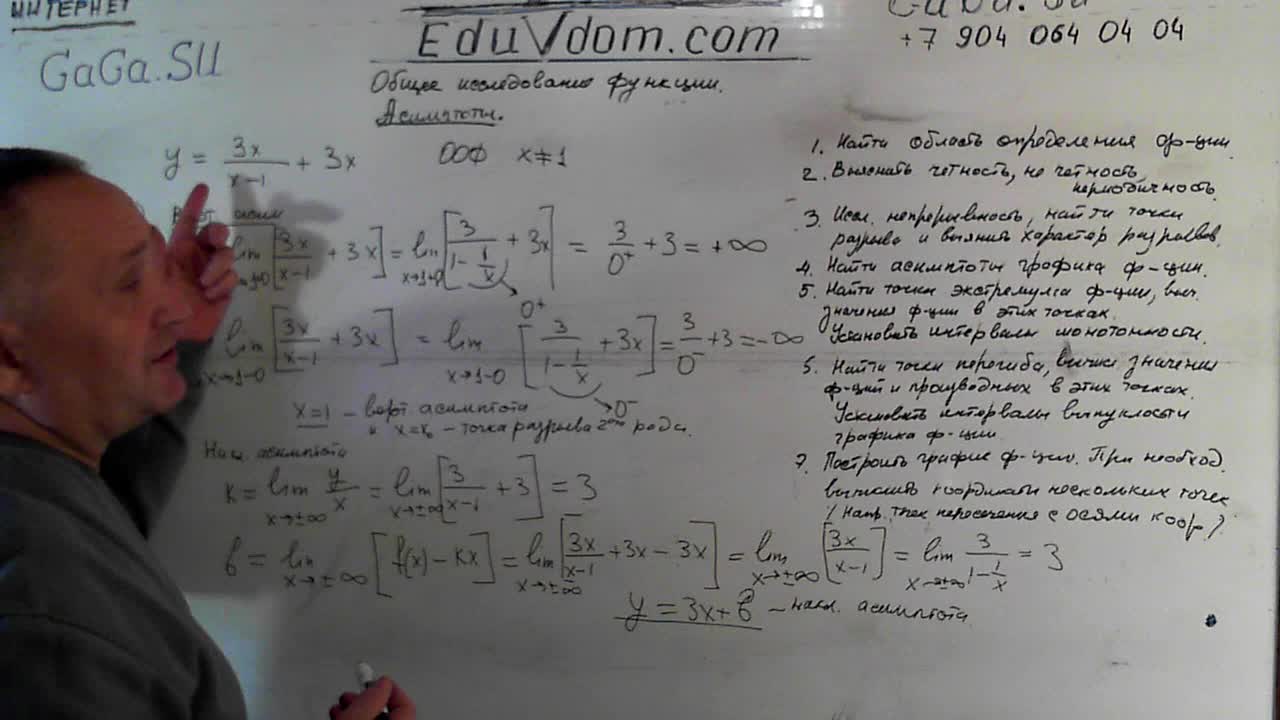 ИНТЕРНЕТ
GaGa.SU
EduVdom.com
GaGa.Su
+7 904 064 04 04
Общее исследование функции.
Асимптоты.
y = 3x/(x-1) + 3x ООФ x≠1
Верт асим
lim x→1+0 [3x/(x-1) + 3x] = lim x→1+0 [3/(1-1/x) + 3x] = 3/0⁺ + 3 = +∞
0⁺
lim x→1-0 [3x/(x-1) + 3x] = lim x→1-0 [3/(1-1/x) + 3x] = 3/0⁻ + 3 = -∞
0⁻
x=1 – верт асимптота
x=x₀ – точка разрыва 2ого рода.
Нак. асимптота
k = lim x→±∞ y/x = lim x→±∞ [3/(x-1) + 3] = 3
b = lim x→±∞ [f(x) - kx] = lim x→±∞ [3x/(x-1) + 3x - 3x] = lim x→±∞ [3x/(x-1)] = lim x→±∞ 3/(1-1/x) = 3
y = 3x + b – накл. асимптота
1. Найти область определения ф-ции.
2. Выяснить четность, не четность,
периодичность.
3. Иссл. непрерывность, найти точки
разрыва и выяснить характер разрывов.
4. Найти асимптоты графика ф-ции.
5. Найти точки экстремума ф-ции, выч.
значения ф-ции в этих точках.
Установить интервалы монотонности.
6. Найти точки перегиба, вычисл значения
ф-ций и производных в этих точках.
Установить интервалы выпуклости
графика ф-ции.
7. Построить график ф-ции. При необход.
вычислить координаты нескольких точек
(Напр. точек пересечения с осями коор.)